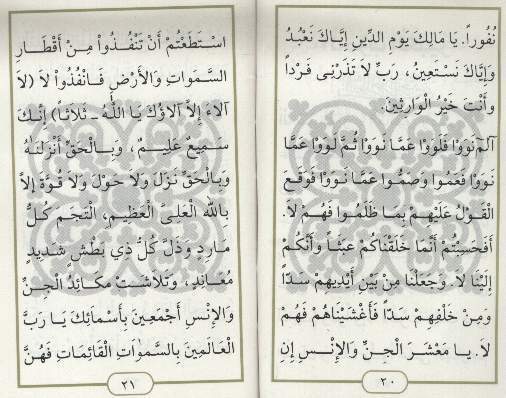 نُفُوراً. يَا مَالِكَ يَوْمِ الدِّينِ إِيَّاكَ نَعْبُدُ
وَإِيَّاكَ نَسْتَعِينُ، رَبِّ لاَ تَذَرْنِى فَرْداً
وَأَنْتَ خَيْرُ الْوَارِثِينَ.
آلمّ نَوَوْا فَلَوَوْا عَمَّا نَوَوْا ثُمَّ لَوَوْا عَمَّا
نَوَوْا فَعَمُوا وَصَمُّوا عَمَّا نَوَوْا فَوَقَعَ
الْقَوْلُ عَلَيْهِمْ بِمَا ظَلَمُوا فَهُمْ لاَ.
أَفَحَسِبْتُمْ أَنَّمَا خَلَقْنَاكُمْ عَبَثاً وَأَنَّكُمْ
إِلَيْنَا لاَ. وَجَعَلْنَا مِنْ بَيْنِ أَيْدِيهِمْ سَدًّا
وَمِنْ خَلْفِهِمْ سَدًّا فَأَغْشَيْنَاهُمْ فَهُمْ
لاَ. يَا مَعْشَرَ الْجِنِّ وَالإِنْسِ إِنِ
٢٠
اسْتَطَعْتُمْ أَنْ تَنْفُذُوا مِنْ أَقْطَارِ
السَّمَوَاتِ وَالأَرْضِ فَانْفُذُوا لاَ (لاَ
آلاءَ إِلاَّ آلاَؤُكَ يَا اللَّهُ ـ ثَلاَثاً) إِنَّكَ
سَمِيعٌ عَلِيمٌ، وَبِالْحَقِّ أَنْزَلْنَاهُ
وَبِالْحَقِّ نَزَلَ وَلاَ حَوْلَ وَلاَ قُوَّةَ إِلاَّ
بِاللهِ الْعَلِىِّ الْعَظِيمِ، الْتَجَمَ كُلُّ
مَارِدٍ وَذَلَّ كُلُّ ذِي بَطْشٍ شَدِيدٍ
مُعَانِدٍ، وَتَلاَشَتْ مَكَائِدُ الْجِنِّ
وَالإِنْسِ أَجْمَعِينَ بِأَسْمَائِكَ يَا رَبَّ
الْعَالَمِينَ بِالسَّمَوَاتِ الْقَائِمَاتِ فَهُنَّ
٢١